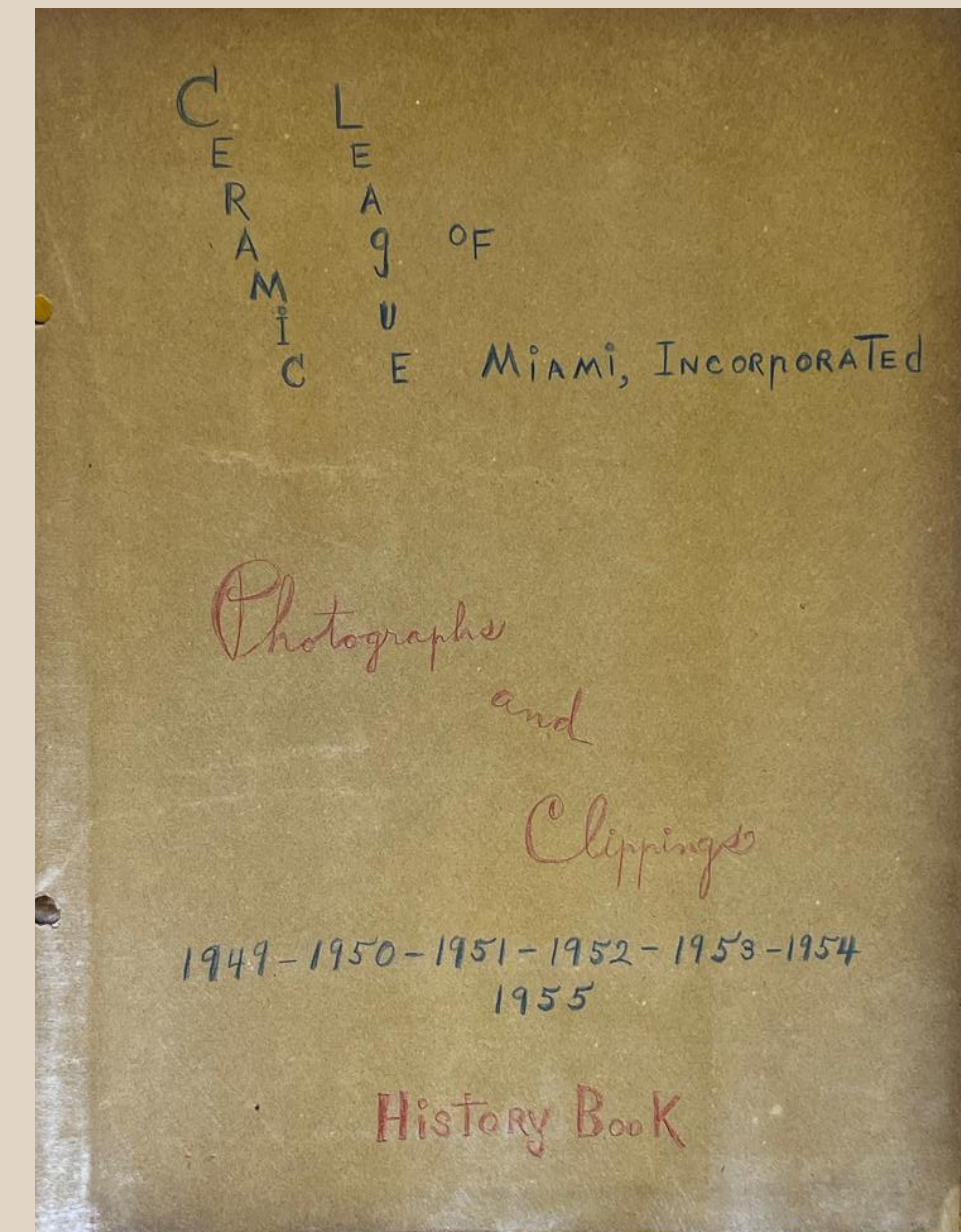 CERAMIC LEAgUE OF
MiAMi, INCORpORATEd
Photographs
and
Clippings
1949-1950-1951-1952-1953-1954
1955
HisTORy BooK